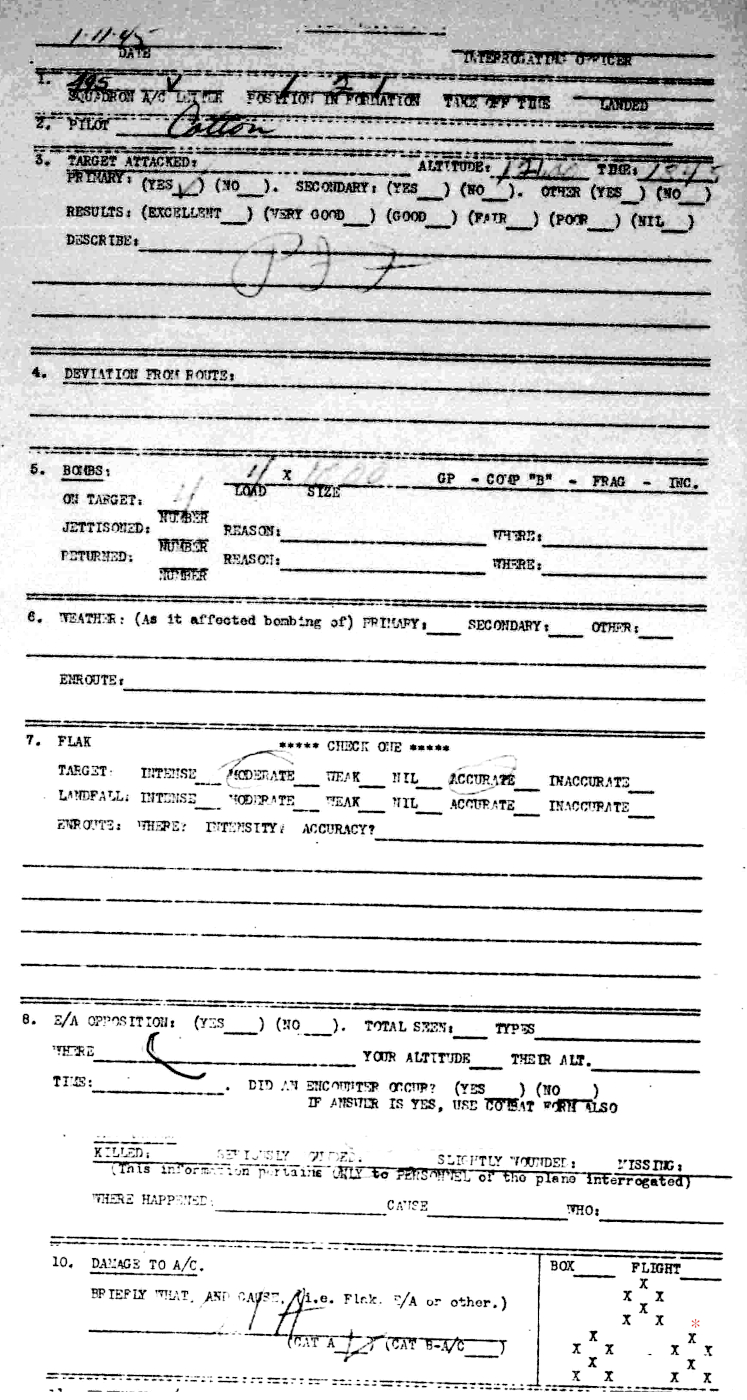 1-11-45
DATE INTERROGATING OFFICER
1. 495 V 1 2 1
SQUADRON A/C LETTER POSITION IN FORMATION TAKE OFF TIME LANDED
2. PILOT Cotton
3. TARGET ATTACKED: ALTITUDE: TIME: 1345
PRIMARY: (YES ✓) (NO __). SECONDARY: (YES __) (NO __). OTHER (YES __) (NO __)
RESULTS: (EXCELLENT __) (VERY GOOD __) (GOOD __) (FAIR __) (POOR __) (NIL __)
DESCRIBE: PFF
4. DEVIATION FROM ROUTE:
5. BOMBS: 4 X GP - COMP "B" - FRAG - INC.
LOAD SIZE
ON TARGET: 4
NUMBER
JETTISONED: REASON: WHERE:
NUMBER
RETURNED: REASON: WHERE:
NUMBER
6. WEATHER: (As it affected bombing of) PRIMARY: SECONDARY: OTHER:
ENROUTE:
7. FLAK ***** CHECK ONE *****
TARGET: INTENSE MODERATE WEAK NIL ACCURATE INACCURATE
LANDFALL: INTENSE MODERATE WEAK NIL ACCURATE INACCURATE
ENROUTE: WHERE? INTENSITY? ACCURACY?
8. E/A OPPOSITION: (YES __) (NO __). TOTAL SEEN: TYPES
WHERE YOUR ALTITUDE THEIR ALT.
TIME: . DID AN ENCOUNTER OCCUR? (YES __) (NO __)
IF ANSWER IS YES, USE COMBAT FORM ALSO
KILLED: SERIOUSLY WOUNDED: SLIGHTLY WOUNDED: MISSING:
(This information pertains ONLY to PERSONNEL of the plane interrogated)
WHERE HAPPENED: CAUSE WHO:
10. DAMAGE TO A/C. BOX FLIGHT
BRIEFLY WHAT, AND CAUSE, (i.e. Flak, E/A or other.)
(CAT A ✓) (CAT B-A/C __)
X
X X
X
X X *
X X
X X X X
X X
X X X X